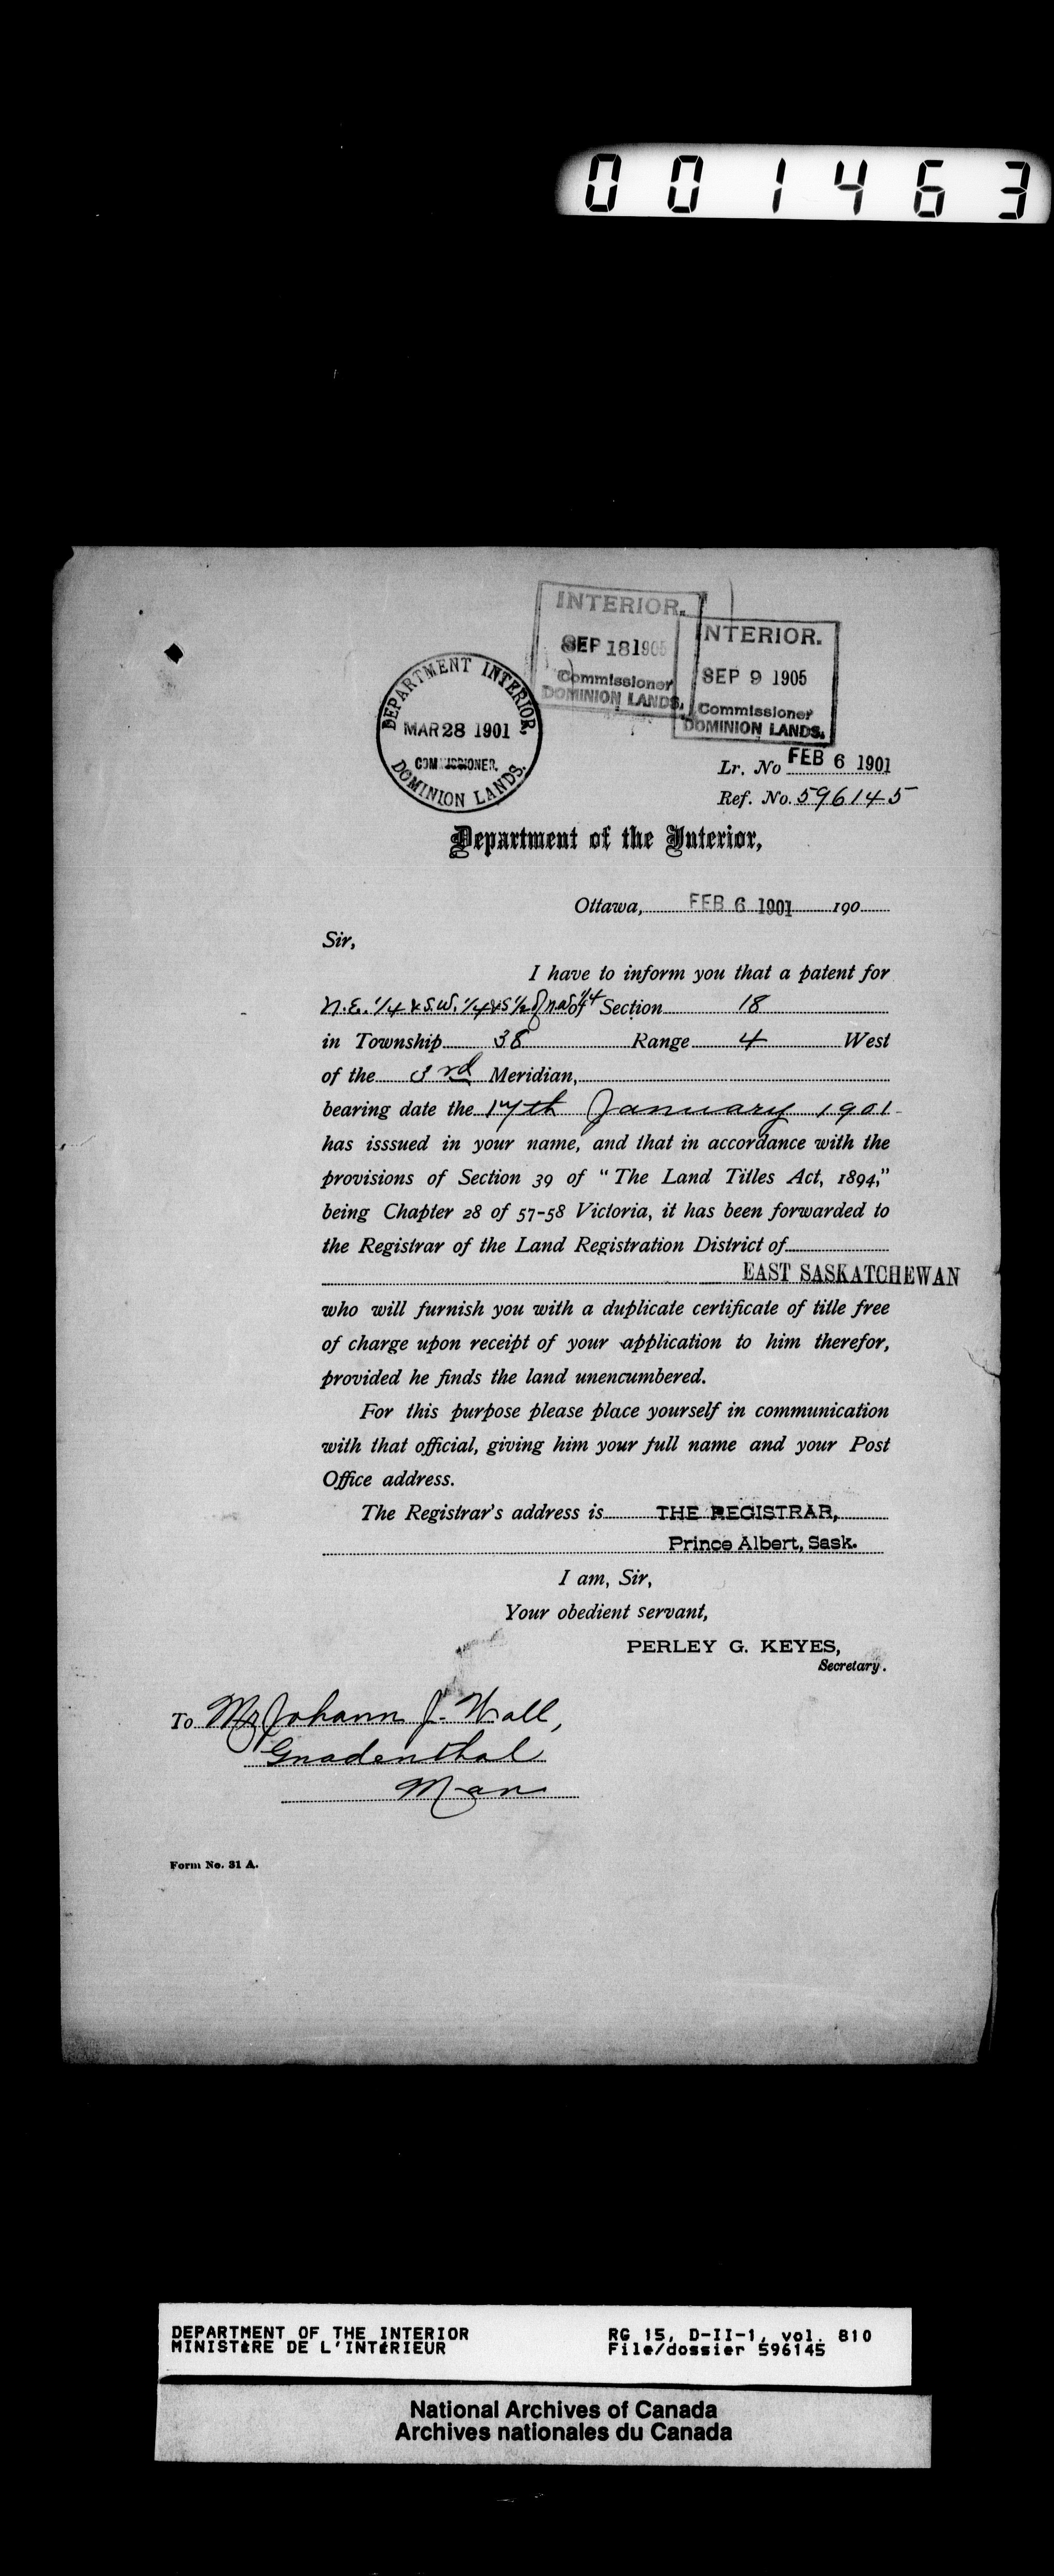 001463
INTERIOR.
SEP 18 1905
Commissioner
DOMINION LANDS.
INTERIOR.
SEP 9 1905
Commissioner
DOMINION LANDS.
DEPARTMENT INTERIOR.
MAR 28 1901
COMMISSIONER.
DOMINION LANDS.
Lr. No FEB 6 1901
Ref. No. 596145
Department of the Interior,
Ottawa, FEB 6 1901 190
Sir,
I have to inform you that a patent for
N.E. 1/4 & S.W. 1/4 & S 1/2 of N.W. 1/4 of Section 18
in Township 38 Range 4 West
of the 3rd Meridian,
bearing date the 17th January 1901
has isssued in your name, and that in accordance with the
provisions of Section 39 of "The Land Titles Act, 1894,"
being Chapter 28 of 57-58 Victoria, it has been forwarded to
the Registrar of the Land Registration District of
EAST SASKATCHEWAN
who will furnish you with a duplicate certificate of title free
of charge upon receipt of your application to him therefor,
provided he finds the land unencumbered.
For this purpose please place yourself in communication
with that official, giving him your full name and your Post
Office address.
The Registrar's address is THE REGISTRAR,
Prince Albert, Sask.
I am, Sir,
Your obedient servant,
PERLEY G. KEYES,
Secretary.
To Mr Johann J. Wall,
Gnadenthal
Man
Form No. 31 A.
DEPARTMENT OF THE INTERIOR RG 15, D-II-1, vol. 810
MINISTÈRE DE L'INTÉRIEUR File/dossier 596145
National Archives of Canada
Archives nationales du Canada